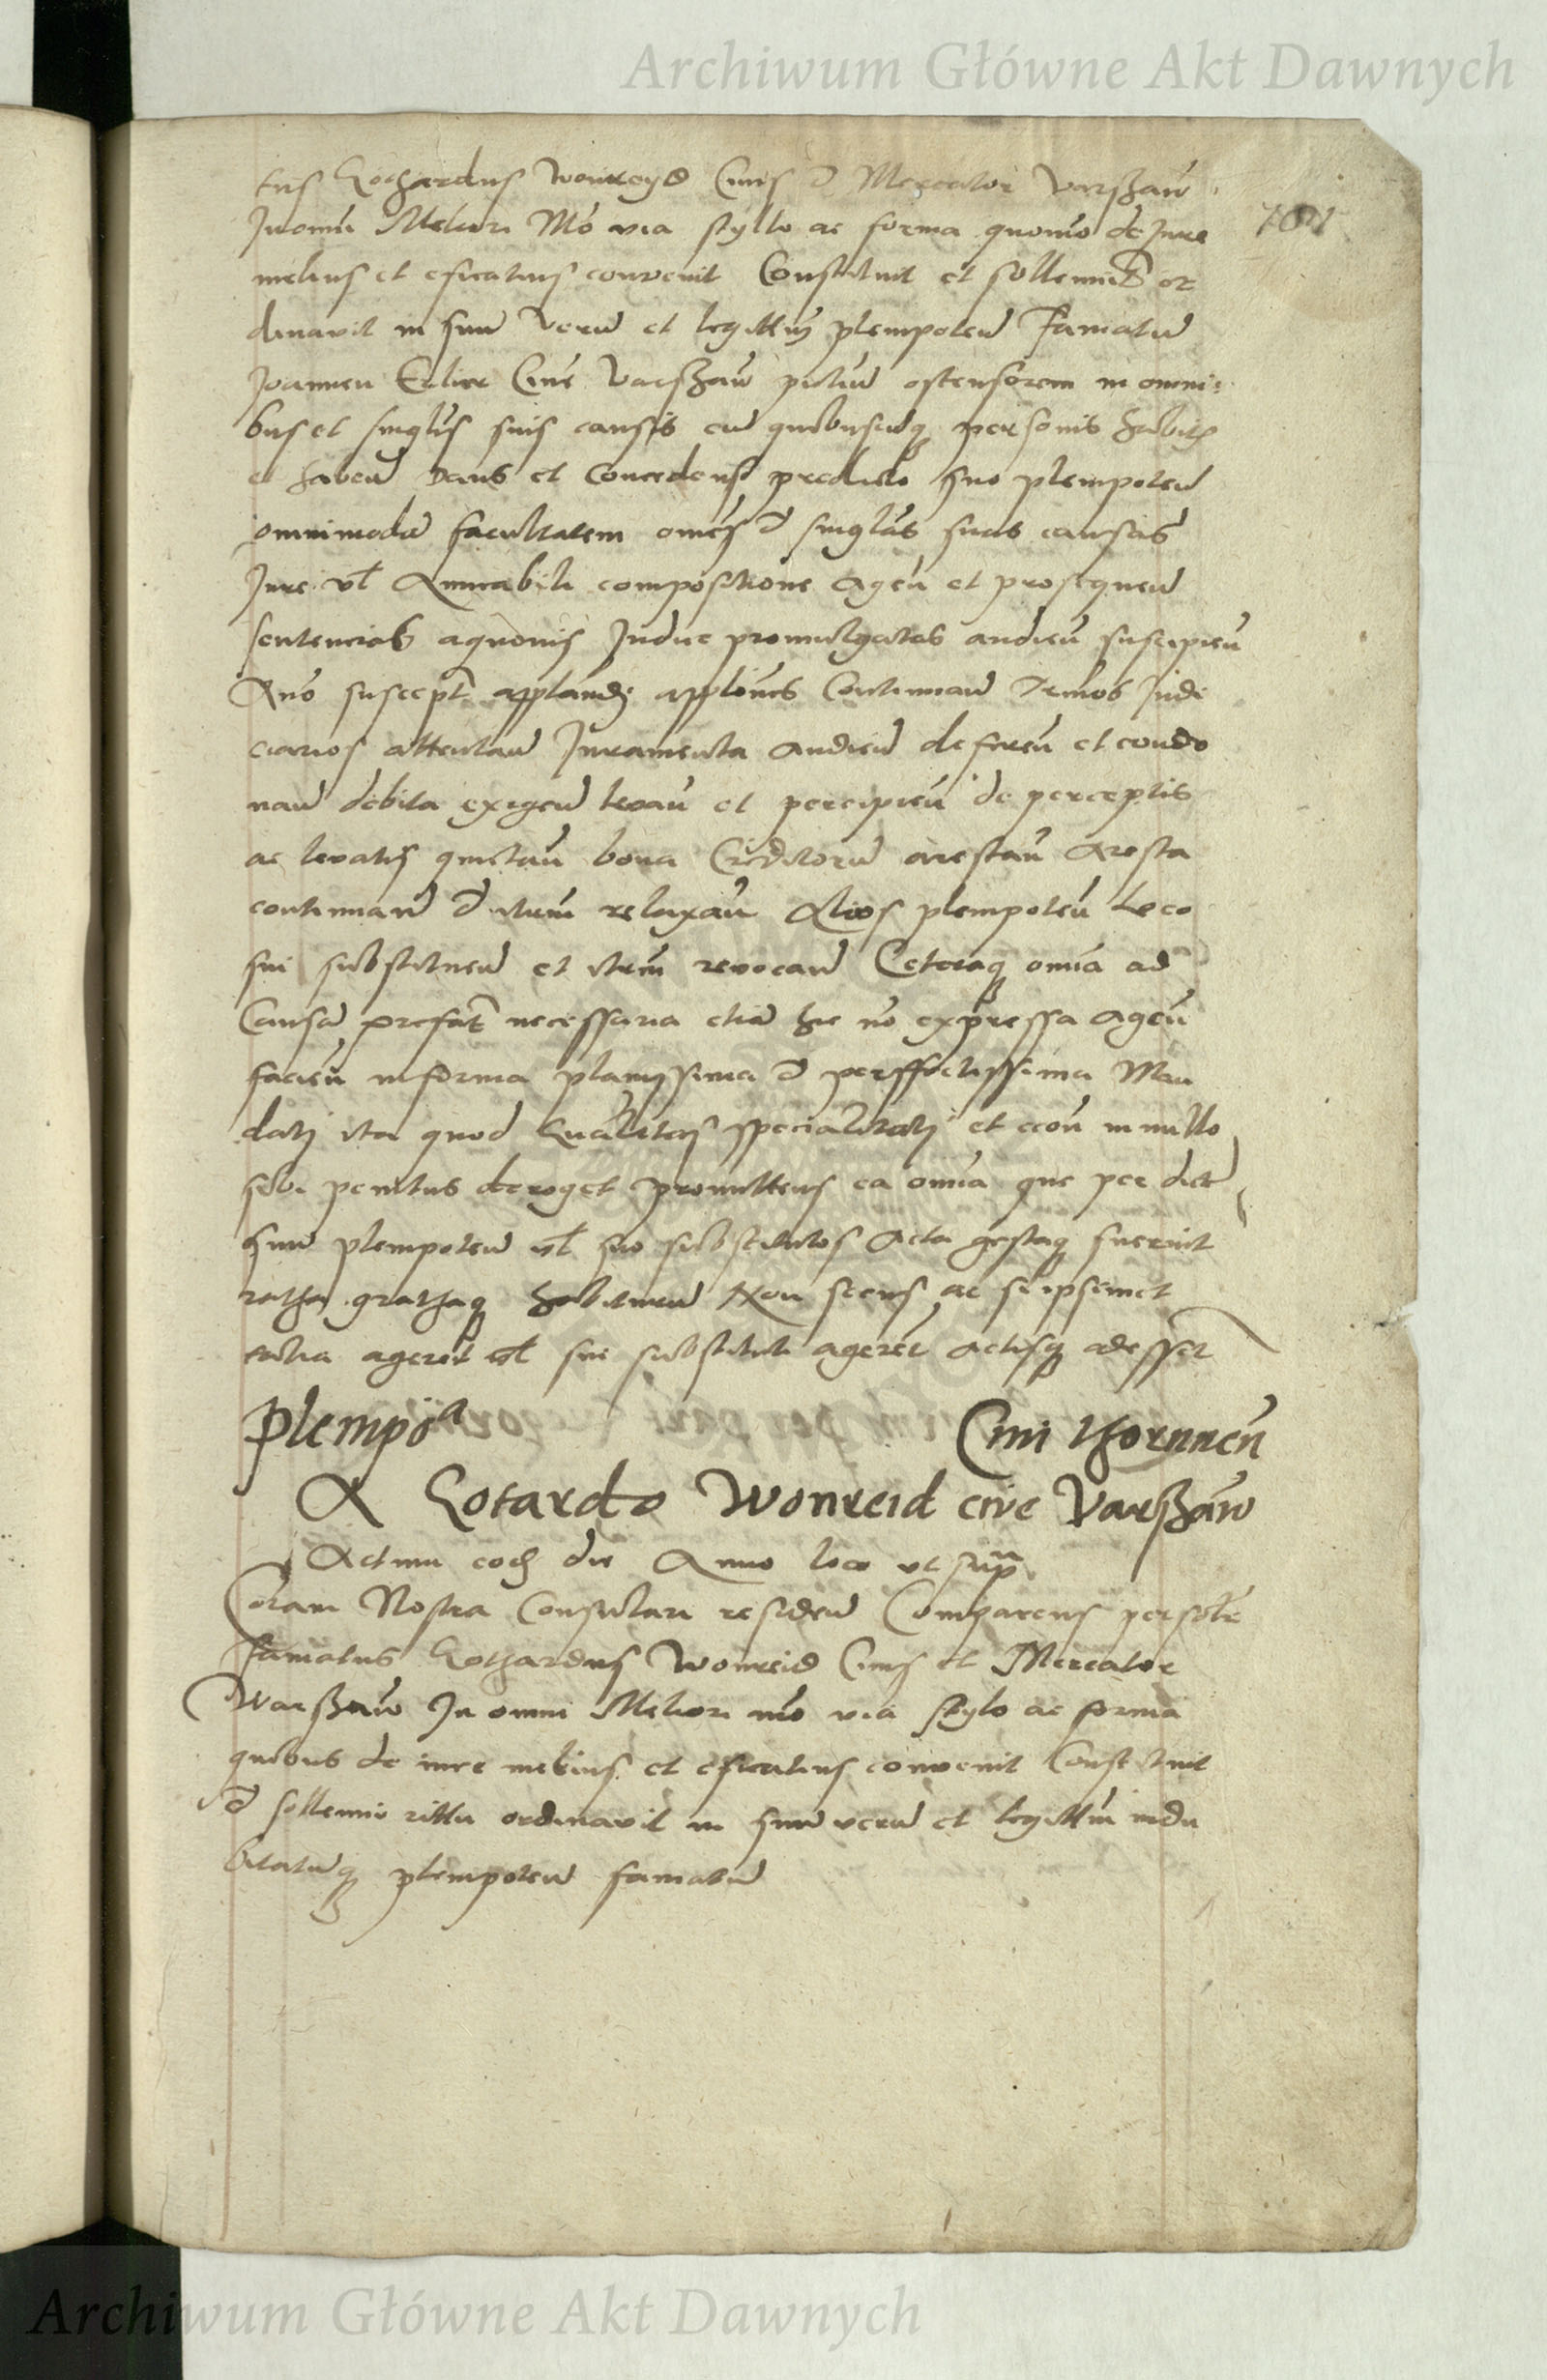 Archiwum Główne Akt Dawnych
tus Gothardus Wonreyd Civis & Mercator Varschaw
In omni Meliori Mo via styllo ac forma quomo de Jure
melius et eficatius convenit Constituit et sollemnit or
dinavit in suu veru et legittim plempoten Famatu
Joannem Cive Varschaw pntiu ostensorem in omni:
bus et singlis suis causis cu quibuscuq personis habit
et haben Dans et Concedens predicto suo plempoten
omnimoda facultatem omes & singlas suas causas
Jure vl Amicabili compositione agen et prosequen
sentencias aquovis Judice promulgatas audien suscipien
A no suscept applandi applones Continuan Termos Judi
ciarios attentan Juramenta audien deferen et condo
nan debita exigen levan et percipien de perceptis
ac levatis quietan bona Creditoru arestan Aresta
continuan & iteru relaxan Alios plempoten Loco
sui substituen et iterum revocan Ceteraq omia ad
Causa prefat necessaria etia hic no expressa agen
facien in forma planissima & perffectissima Man
dati ita quod specialitati et econ in nullo
sibi penitus deroget promittens ea omia que per dict
suu plempoten vl suo substitutos acta gestaq fuerint
ratha grathaq habituru Non secus ac si ipsemet
talia ageret vl sui substituti ageret actisq adesset
Plempoa Civi Thorunen
A Gotardo Wonreid cive Varschaw
Actum eod die Anno loco ut supra
Coram Nostra Consulari residen Comparens persolr
famatus Gothardus Wonreid Civis et Mercator
Warschaw In omni Meliori mo via stylo ac forma
quibus de iure melius et eficatius convenit Constituit
& sollemni rittu ordinavit in suu veru et legittim indu
bitatuq plempoten famatu
Archiwum Główne Akt Dawnych